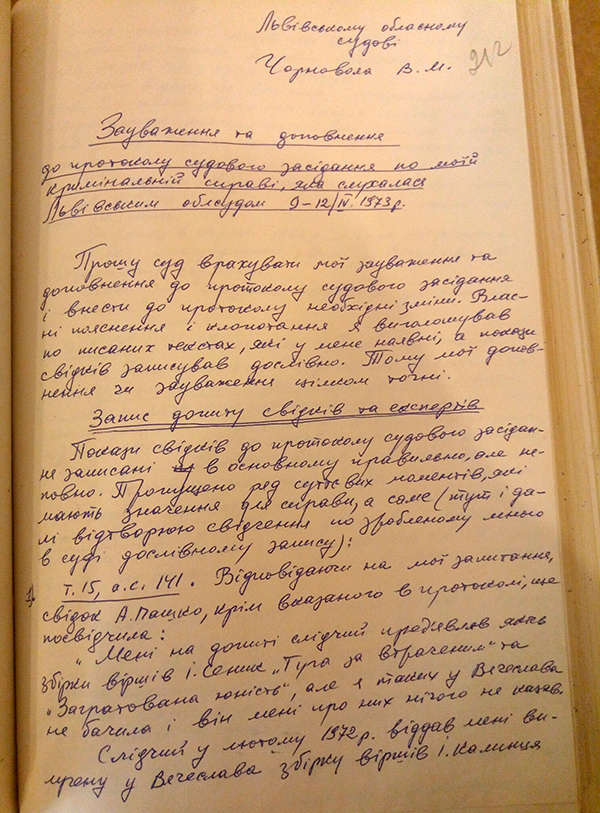 Львівському обласному
судові
Чорновола В.М.
212
Зауваження та доповнення
до протоколу судового засідання по моїй
кримінальній справі, яка слухалася
Львівським облсудом 9–12/IV.1973р.
Прошу суд врахувати мої зауваження та
доповнення до протоколу судового засідання
і внести до протоколу необхідні зміни. Влас-
ні пояснення і клопотання я виголошував
по писаних текстах, які у мене наявні, а покази
свідків записував дослівно. Тому мої допов-
нення чи зауваження цілком точні.
Запис допиту свідків та експертів
Покази свідків до протоколу судового засідан-
не записані в основному правильно, але не-
повно. Пропущено ряд суттєвих моментів, які
мають значення для справи, а саме (тут і да-
лі відтворюю свідчення по зробленому мною
в суді дослівному запису):
т. 15, а.с. 141. Відповідаючи на мої запитання,
свідок А.Пашко, крім вказаного в протоколі, ще
посвідчила:
„Мені на допиті слідчий пред'являв якісь
збірки віршів І.Сеник „Туга за втраченим" та
„Загратована юність", але я таких у Вячеслава
не бачила і він мені про них нічого не казав.
Слідчий у лютому 1972р. віддав мені ви-
лучену у Вячеслава збірку віршів І.Калинця